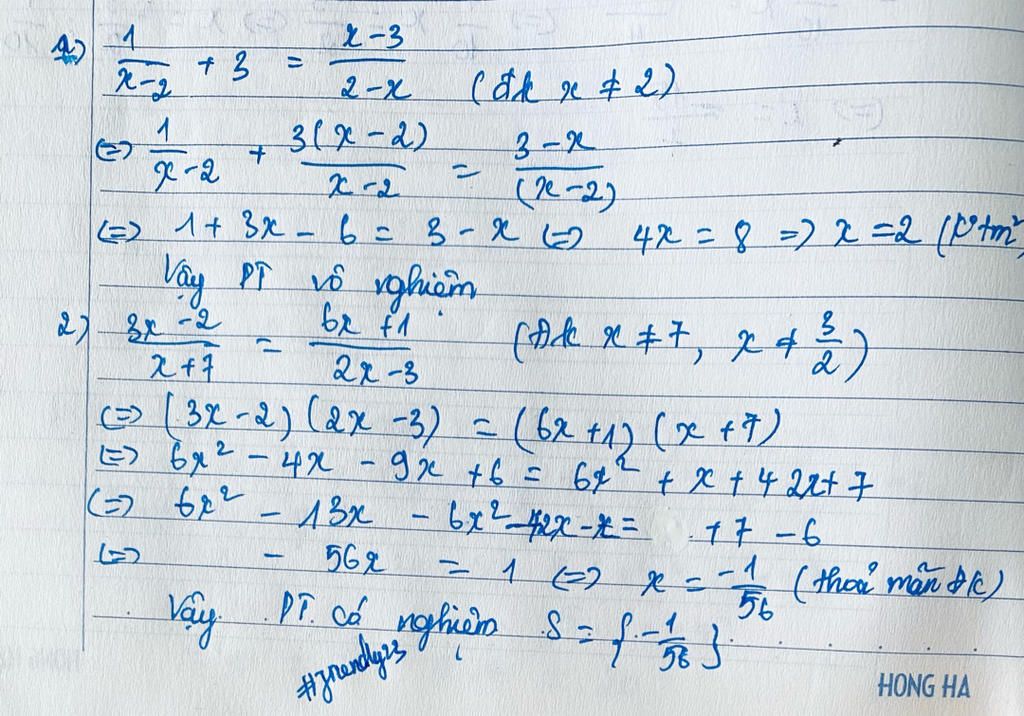 1) 1/(x-2) + 3 = (x-3)/(2-x) (đk x ≠ 2)
<=> 1/(x-2) + 3(x-2)/(x-2) = (3-x)/(x-2)
<=> 1 + 3x - 6 = 3 - x <=> 4x = 8 => x = 2 (ko tm)
Vậy PT vô nghiệm
2) (3x-2)/(x+7) = (6x+1)/(2x-3) (Đk x ≠ 7, x ≠ 3/2)
<=> (3x-2)(2x-3) = (6x+1)(x+7)
<=> 6x² - 4x - 9x + 6 = 6x² + x + 42x + 7
<=> 6x² - 13x - 6x² - 42x - x = +7 - 6
<=> - 56x = 1 <=> x = -1/56 (thoả mãn đk)
Vậy PT có nghiệm S = {-1/56}
HONG HA